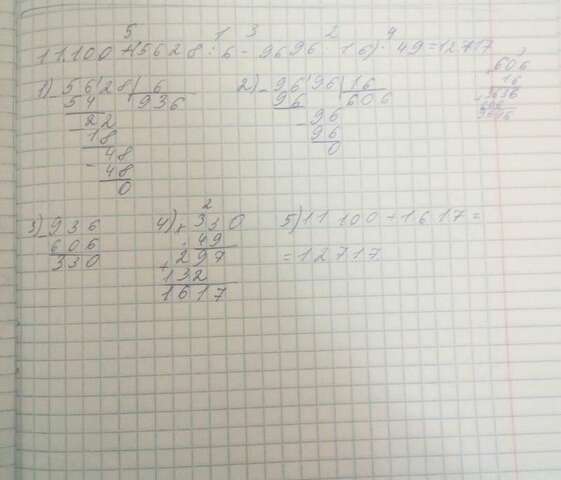 5 1 3 2 4
11100+(5628:6-9696:16)·49=12717
1) 5628 | 6
54 936
22
18
48
48
0
2) 9696 | 16
96 606
96
96
0
606
16
3636
606
9696
3) 936
606
330
4) 2
× 330
49
297
+ 132
1617
5) 11100+1617=
=12717